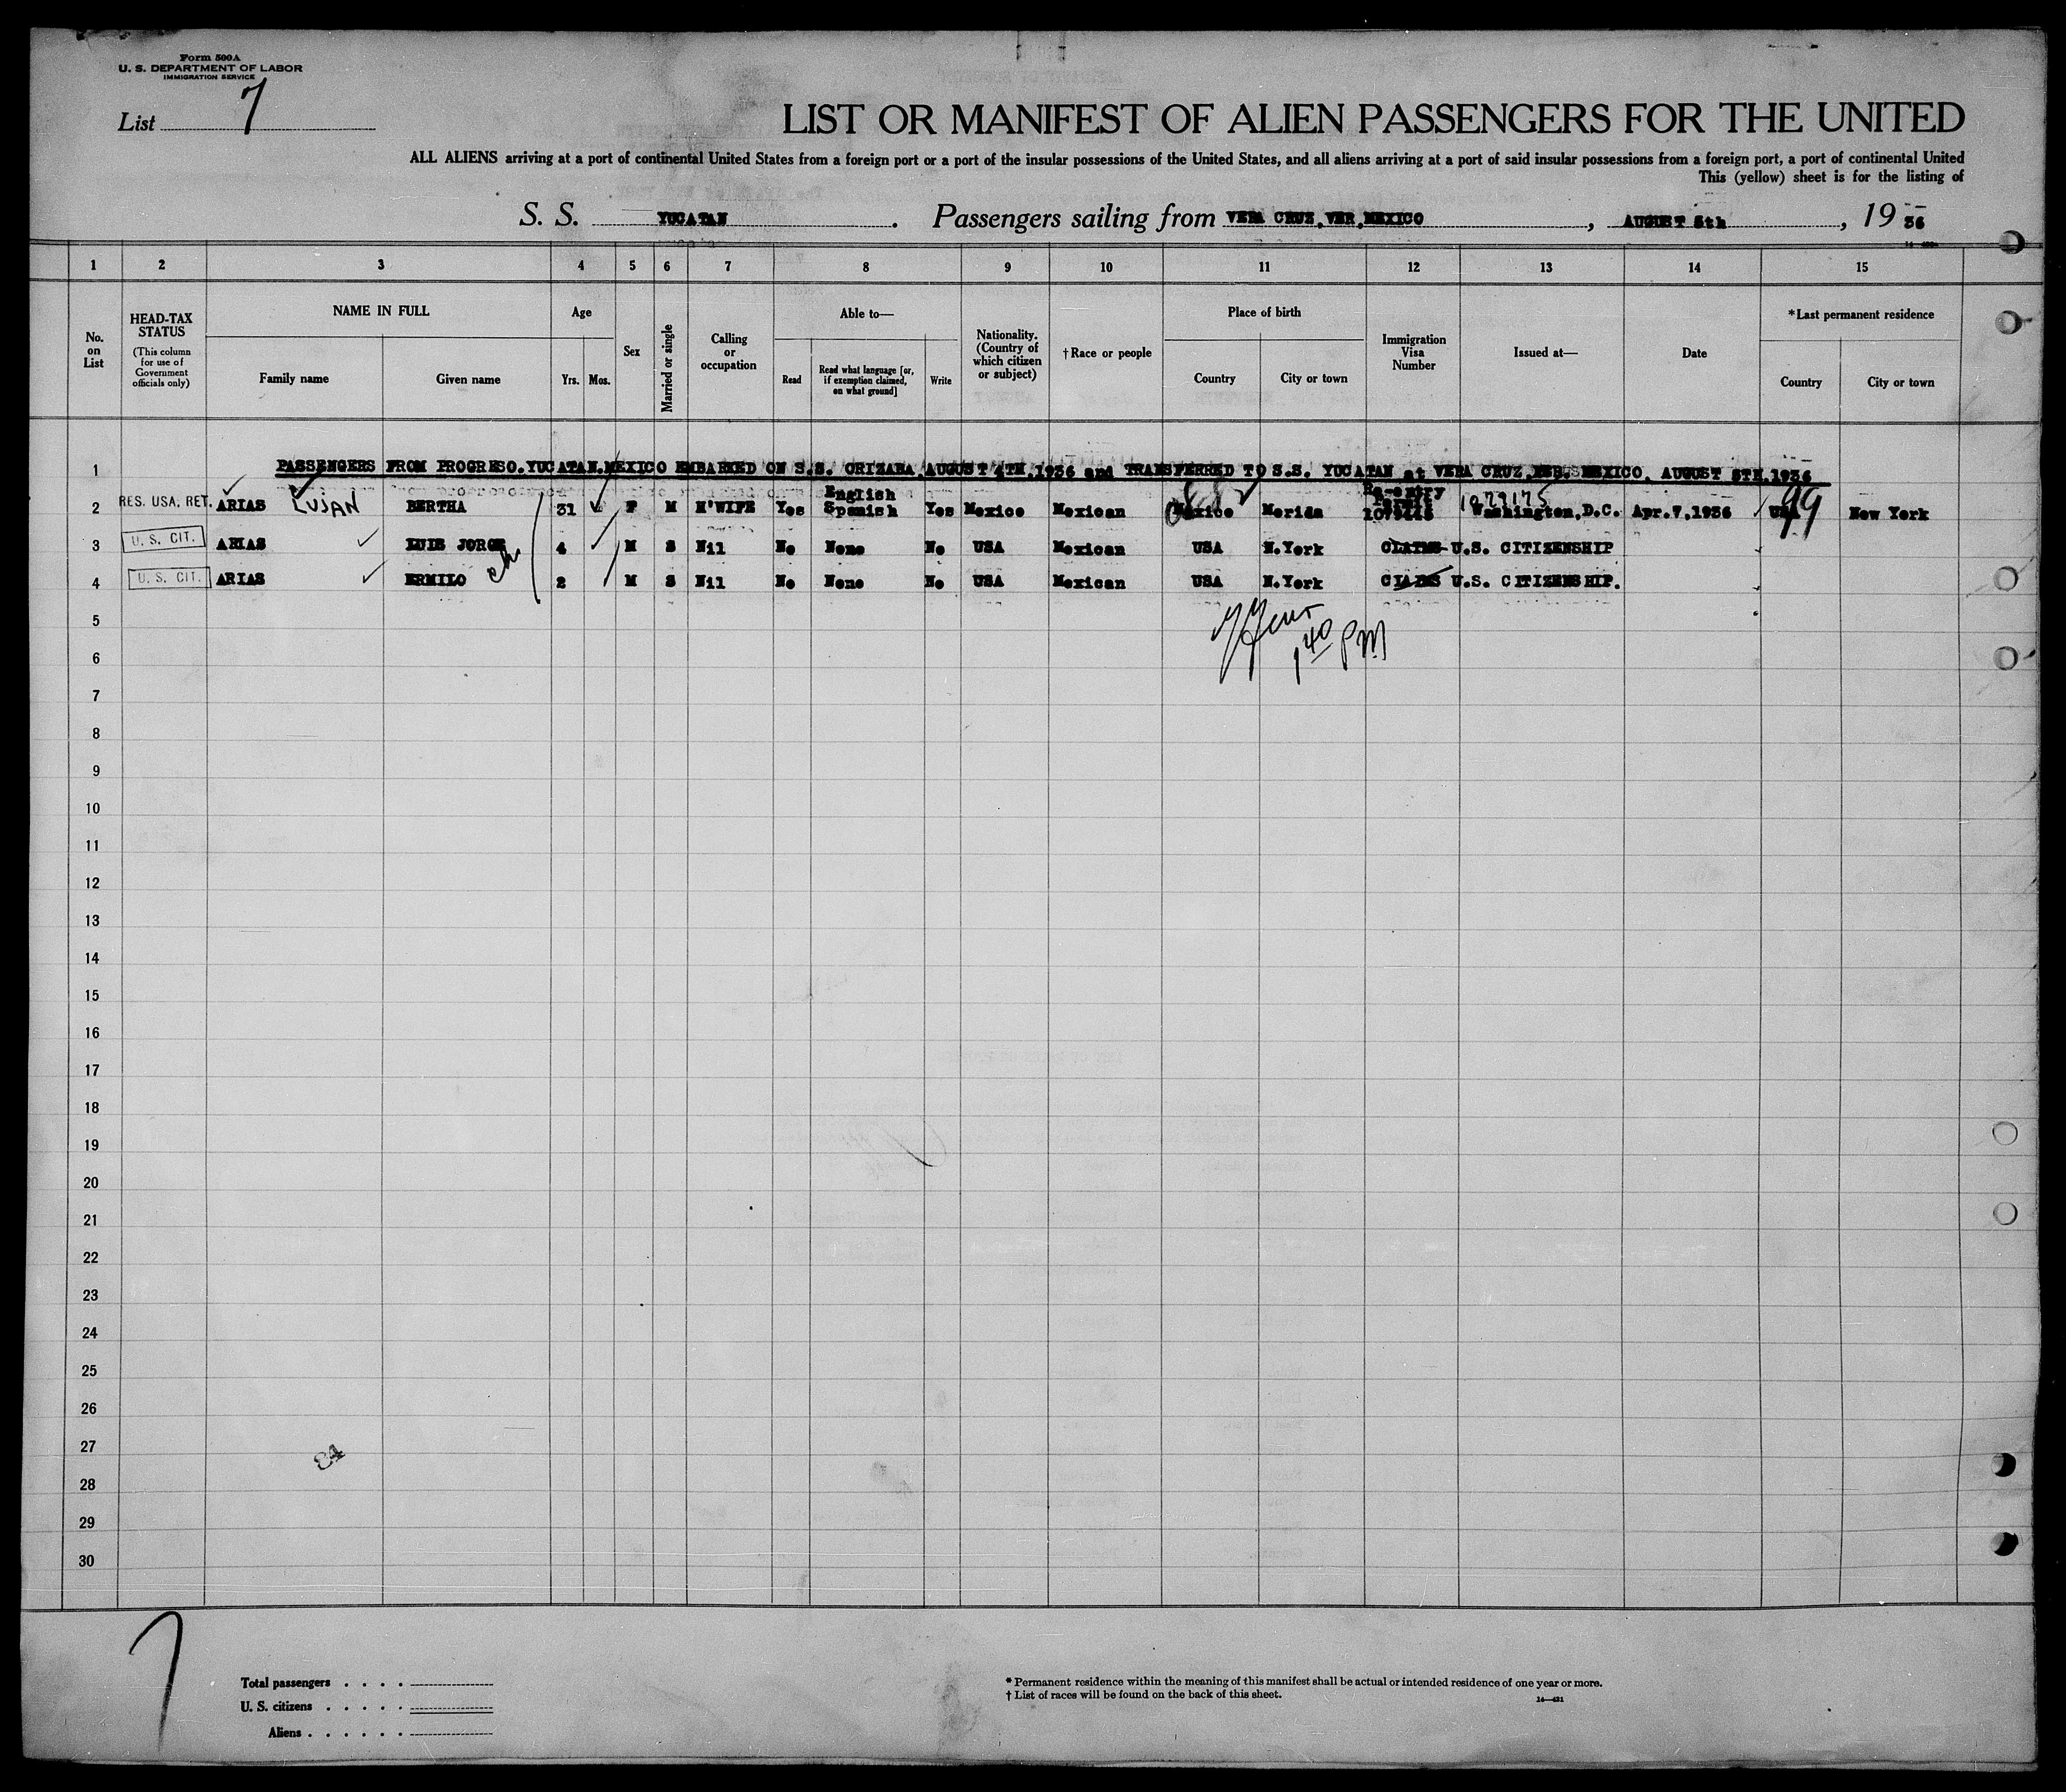 Form 500A
U. S. DEPARTMENT OF LABOR
IMMIGRATION SERVICE
List 7
LIST OR MANIFEST OF ALIEN PASSENGERS FOR THE UNITED
ALL ALIENS arriving at a port of continental United States from a foreign port or a port of the insular possessions of the United States, and all aliens arriving at a port of said insular possessions from a foreign port, a port of continental United
This (yellow) sheet is for the listing of
S. S. YUCATAN. Passengers sailing from VERA CRUZ, VER, MEXICO, AUGUST 5th, 1936
1 2 3 4 5 6 7 8 9 10 11 12 13 14 15
No. on List
HEAD-TAX STATUS (This column for use of Government officials only)
NAME IN FULL
Family name
Given name
Age
Yrs. Mos.
Sex
Married or single
Calling or occupation
Able to—
Read
Read what language [or, if exemption claimed, on what ground]
Write
Nationality. (Country of which citizen or subject)
†Race or people
Place of birth
Country
City or town
Immigration Visa Number
Issued at—
Date
*Last permanent residence
Country
City or town
1 PASSENGERS FROM PROGRESO. YUCATAN. MEXICO EMBARKED ON S.S. ORIZABA, AUGUST 4TH, 1936 and TRANSFERRED TO S.S. YUCATAN at VERA CRUZ, MEXICO, AUGUST 5TH, 1936
2 RES. USA. RET. ARIAS LUJAN BERTHA 31 F M H'WIFE Yes English Spanish Yes Mexico Mexican Mexico Merida Re-entry 1079175 Washington, D.C. Apr. 7, 1936 99 New York
3 U. S. CIT. ARIAS LUIS JORGE 4 M S Nil No None No USA Mexican USA N. York CLAIMS U.S. CITIZENSHIP
4 U. S. CIT. ARIAS ERMILO 2 M S Nil No None No USA Mexican USA N. York CLAIMS U.S. CITIZENSHIP.
5
1 40 PM
6
7
8
9
10
11
12
13
14
15
16
17
18
19
20
21
22
23
24
25
26
27
28
29
30
7
Total passengers . . . .
U. S. citizens . . . . .
Aliens . . . . . .
* Permanent residence within the meaning of this manifest shall be actual or intended residence of one year or more.
† List of races will be found on the back of this sheet.
14—431